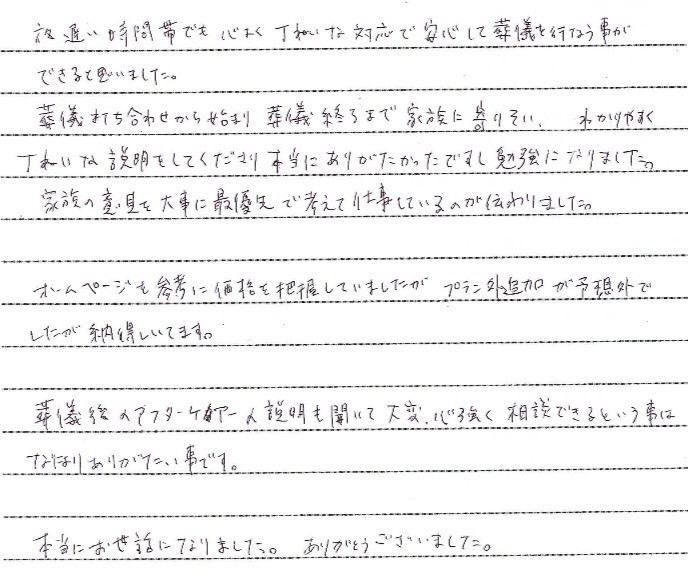 夜遅い時間帯でも心よく丁ねいな対応で安心して葬儀を行なう事が
できると思いました。
葬儀打ち合わせから始まり葬儀終るまで家族に寄りそい、わかりやすく
丁ねいな説明をしてくださり本当にありがたかったですし勉強になりました。
家族の意見を大事に最優先で考えて仕事しているのが伝わりました。
ホームページを参考に価格を把握していましたがプラン外追加が予想外で
したが納得しいてます。
葬儀後のアフターケアーの説明も聞いて大変心強く相談できるという事は
なによりありがたい事です。
本当にお世話になりました。ありがとうございました。